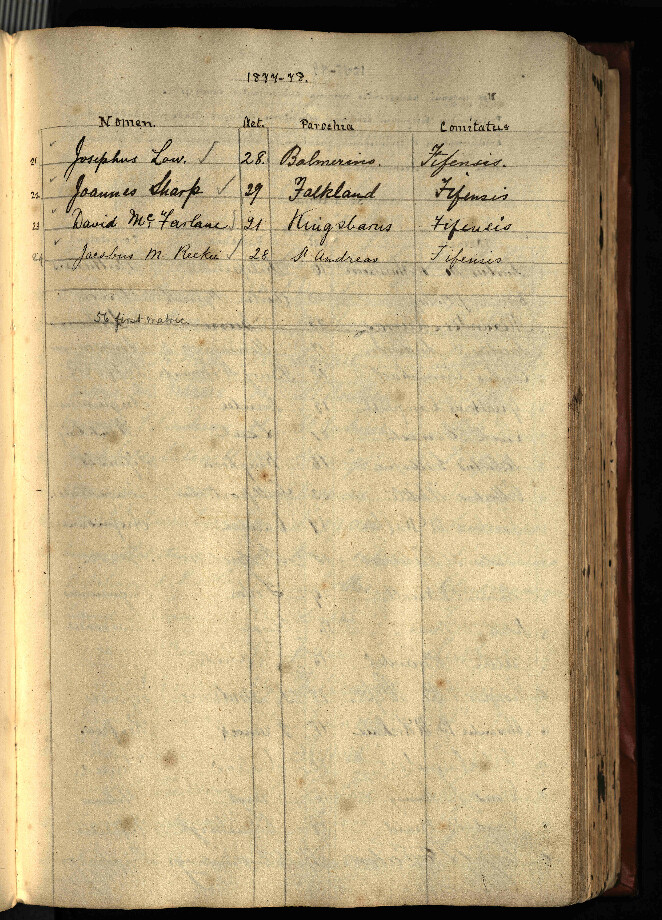 1877-78.
Nomen. Aet. Parochia Comitatus
21 Josephus Low. 28. Balmerino. Fifensis.
22 Joannes Sharp 29 Falkland Fifensis
23 David McFarlane 21 Kingsbarns Fifensis
24 Jacobus M. Reekie 28 St Andreas Fifensis
56 first matric